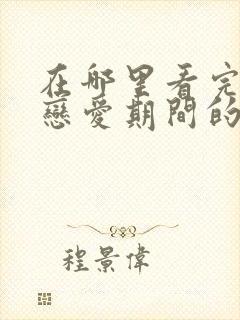 在哪里看完
戀愛期間的
程景偉